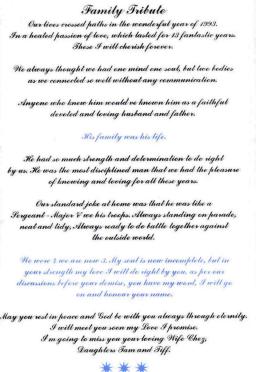 Family Tribute
Our lives crossed paths in the wonderful year of 1993.
In a heated passion of love, which lasted for 13 fantastic years.
These I will cherish forever.
We always thought we had one mind one soul, but two bodies
as we connected so well without any communication.
Anyone who knew him would've known him as a faithful
devoted and loving husband and father.
His family was his life.
He had so much strength and determination to do right
by us. He was the most disciplined man that we had the pleasure
of knowing and loving for all these years.
Our standard joke at home was that he was like a
Sergeant - Major & we his troops. Always standing on parade,
neat and tidy, Always ready to do battle together against
the outside world.
We were 4 we are now 3. My soul is now incomplete, but in
your strength my love I will do right by you, as per our
discussions before your demise, you have my word, I will go
on and honour your name.
May you rest in peace and God be with you always through eternity.
I will meet you soon my Love I promise.
I'm going to miss you your loving Wife Chez,
Daughters Tam and Tiff.